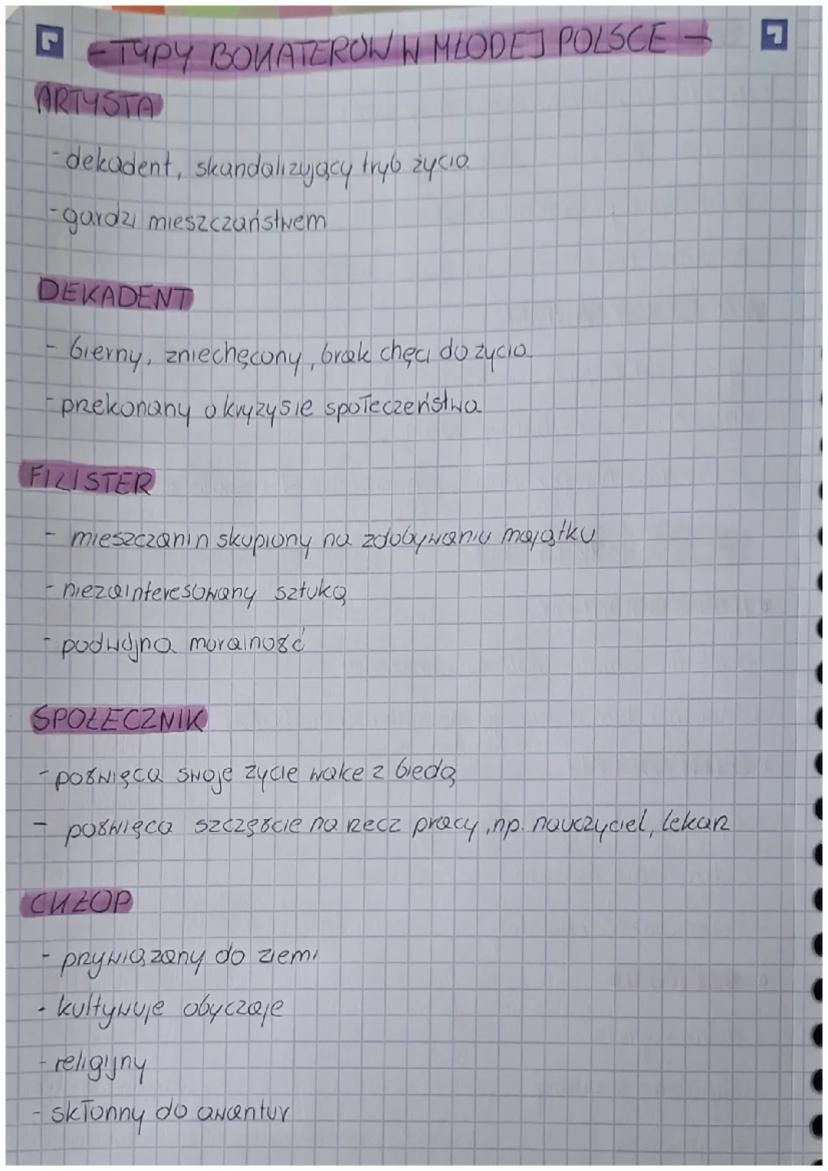 - TYPY BOHATERÓW W MŁODEJ POLSCE -
ARTYSTA
- dekadent, skandalizujący tryb życia
- gardzi mieszczaństwem
DEKADENT
- bierny, zniechęcony, brak chęci do życia
- przekonany o kryzysie społeczeństwa
FILISTER
- mieszczanin skupiony na zdobywaniu majątku
- niezainteresowany sztuką
- podwójna moralność
SPOŁECZNIK
- poświęca swoje życie walce z biedą
- poświęca szczęście na rzecz pracy, np. nauczyciel, lekarz
CHŁOP
- przywiązany do ziemi
- kultywuje obyczaje
- religijny
- skłonny do awantur